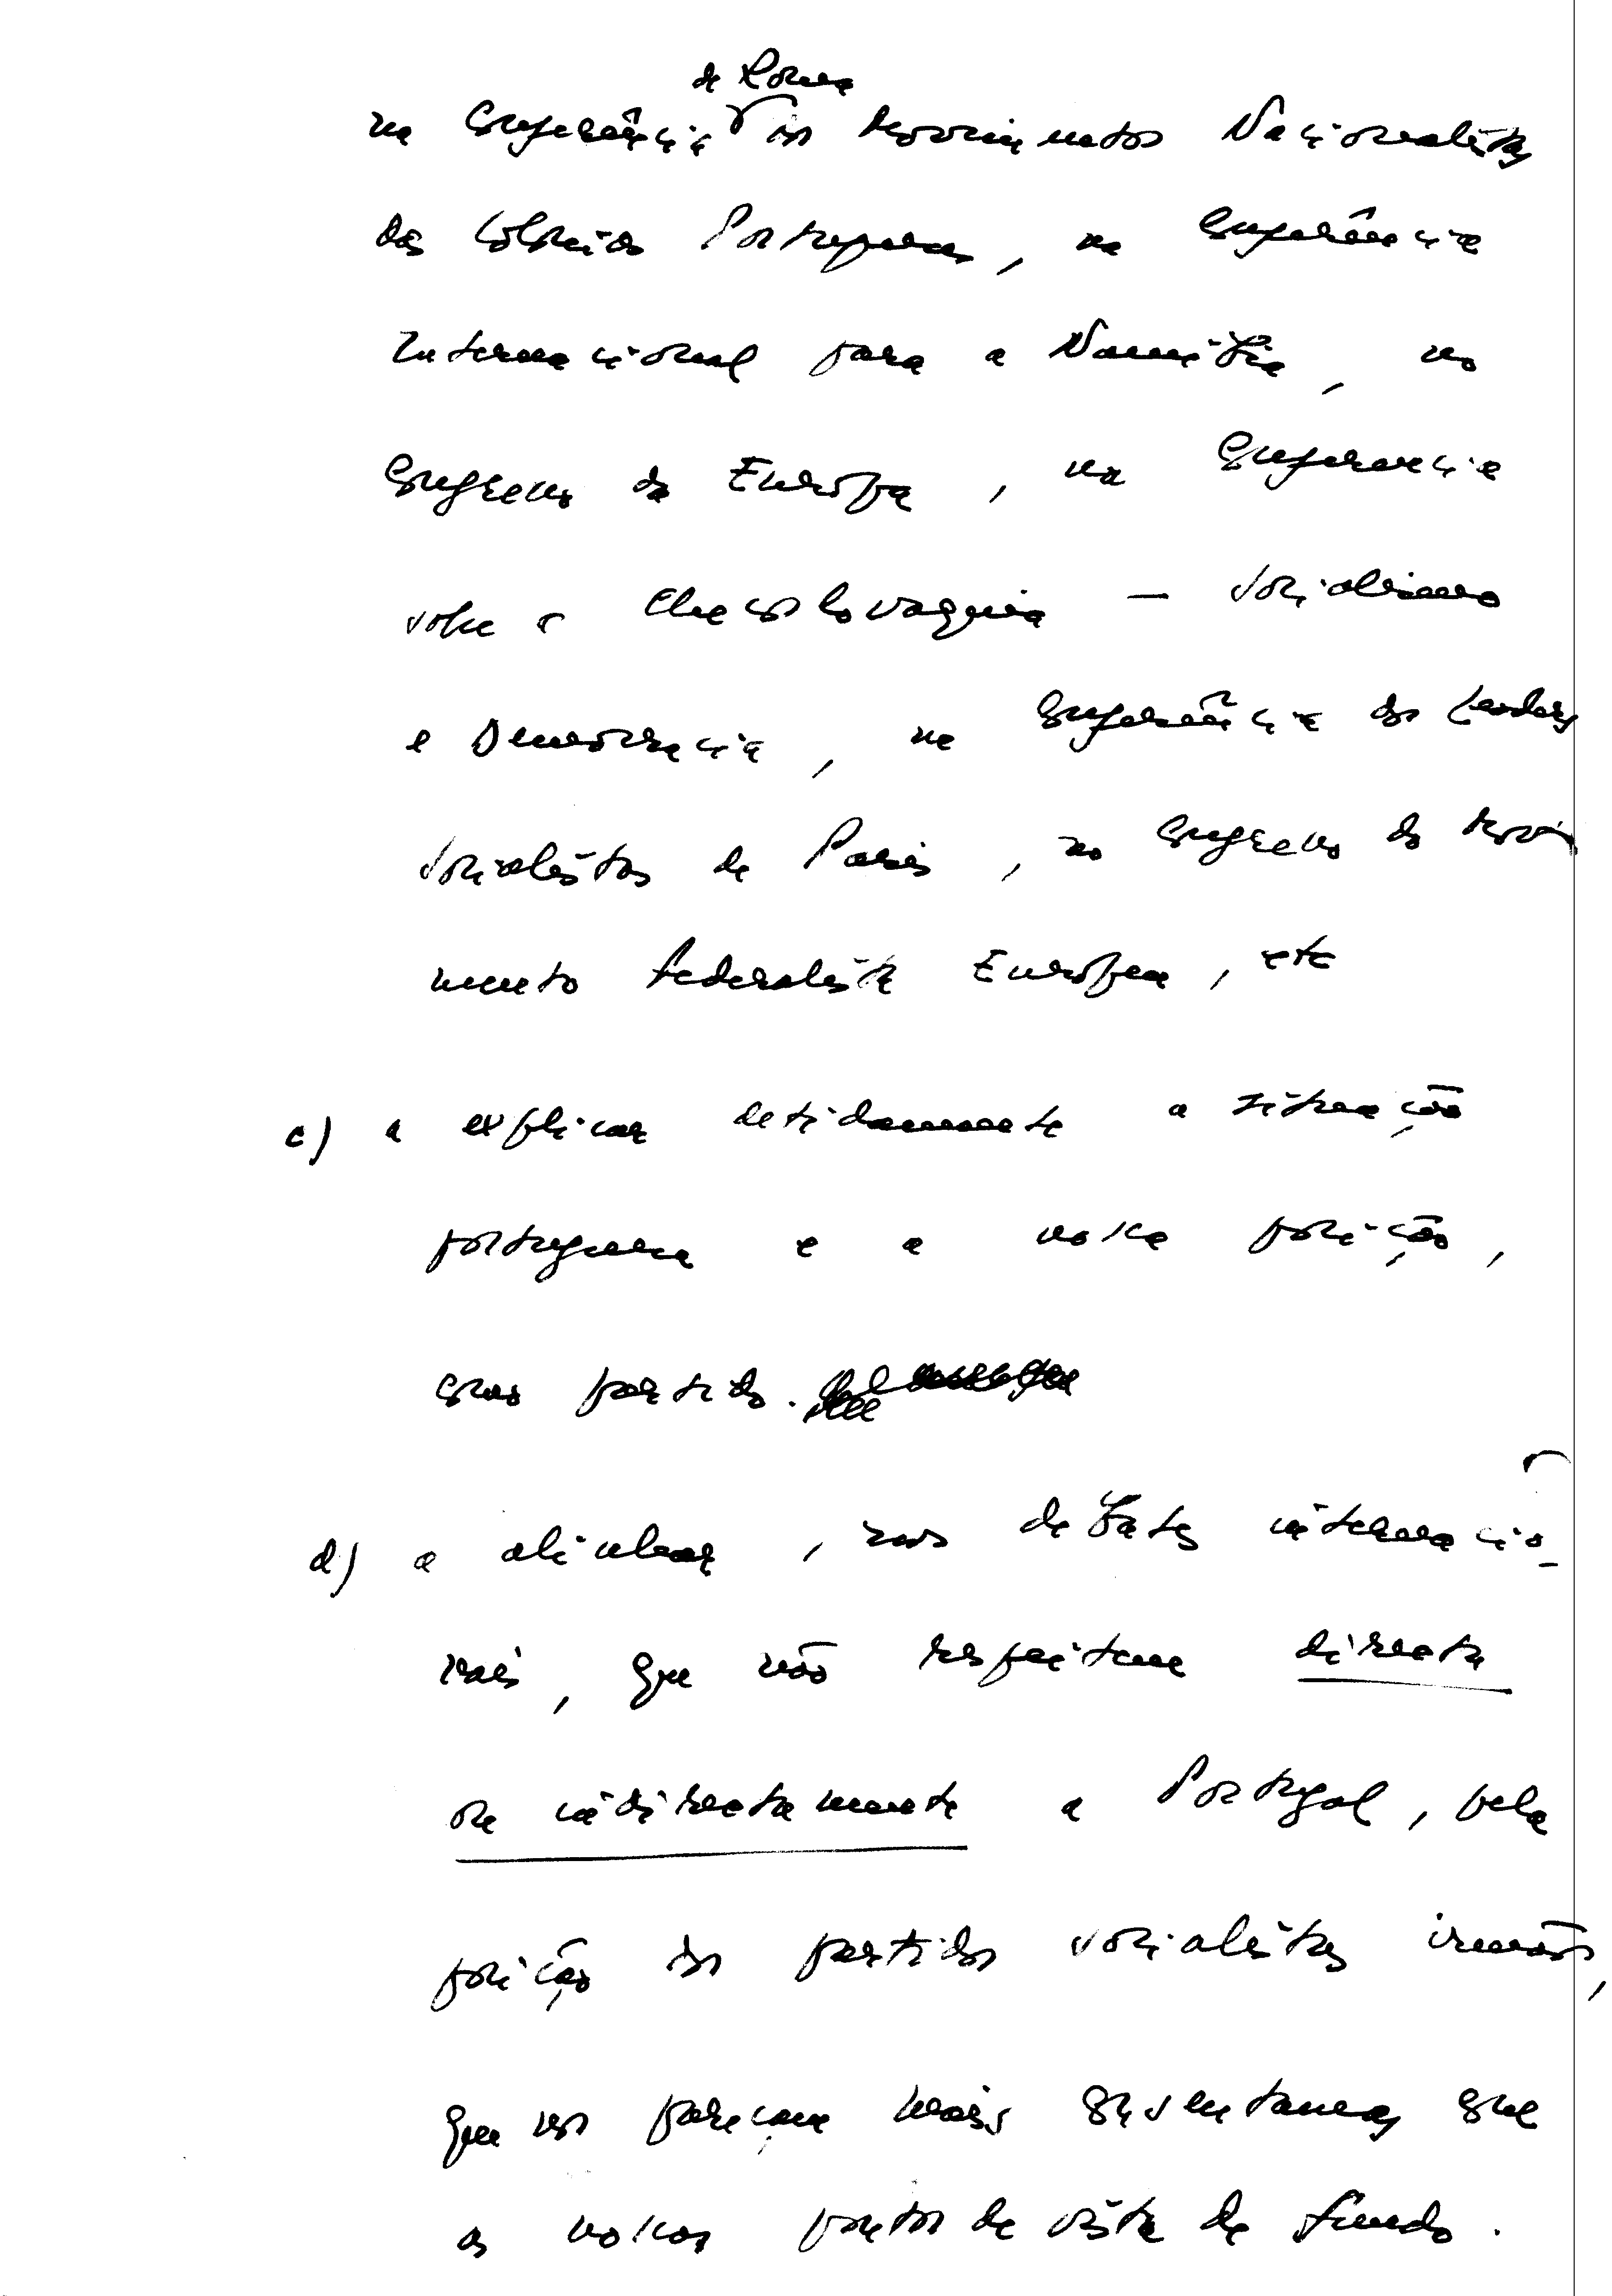 de Roma
na Conferência dos Movimentos Nacionalistas
das Colónias Portuguesas, na Conferência
Internacional para a Namíbia, no
Congresso da Europa, na Conferencia
sobre a Checoslovaquia - Socialismo
e Democracia, na Conferência dos Leaders
Socialistas de Paris, no Congresso do Movi
mento Federalista Europeu, etc
c) a explicar detidamente a situação
portuguesa e a nossa posição,
como partido.
d) a alinhar, nos debates internacio-
nais, que não respeitem directa
ou indirectamente a Portugal, pela
posição dos partidos socialistas irmãos,
que nos pareçam mais consentaneas com
os nossos pontos de vista de fundo.